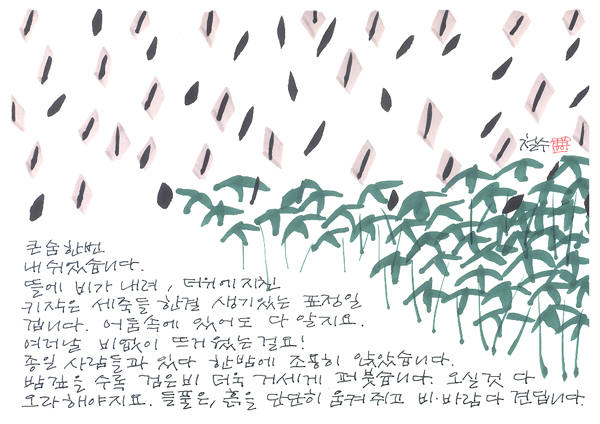 철수
큰 숨 한번
내 쉬었습니다.
뜰에 비가 내려, 더위에 지친
키작은 세죽들 한결 생기있는 표정일
겁니다. 어둠속에 있어도 다 알지요.
여러날 비없이 뜨거웠는걸요!
종일 사람들과 있다 한밤에 조용히 앉았습니다.
밤깊을수록 검은비 더욱 거세게 퍼붓습니다. 오실것 다
오라해야지요. 들풀은, 흙을 단단히 움켜쥐고 비·바람 다 견딥니다.